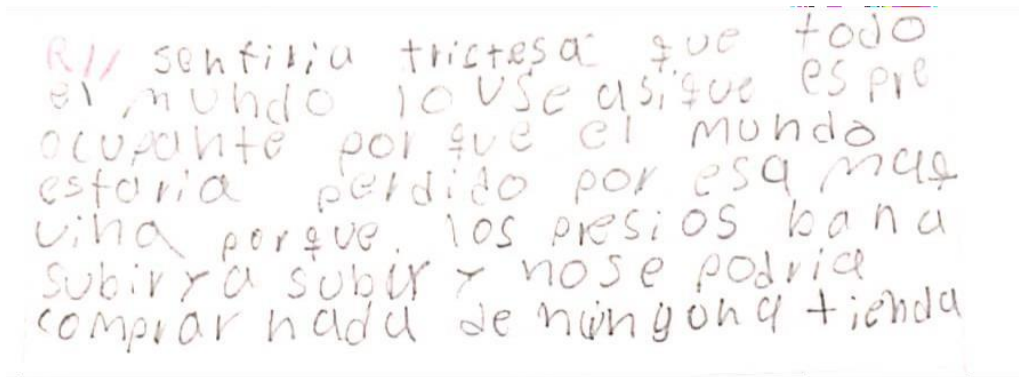 R// sentiria tristesa que todo
el mundo lo use asi que es pre
ocupante por que el mundo
estaria perdido por esa maq
uina porque. los presios bana
subir y a subir y nose podria
comprar nada de ningona tienda